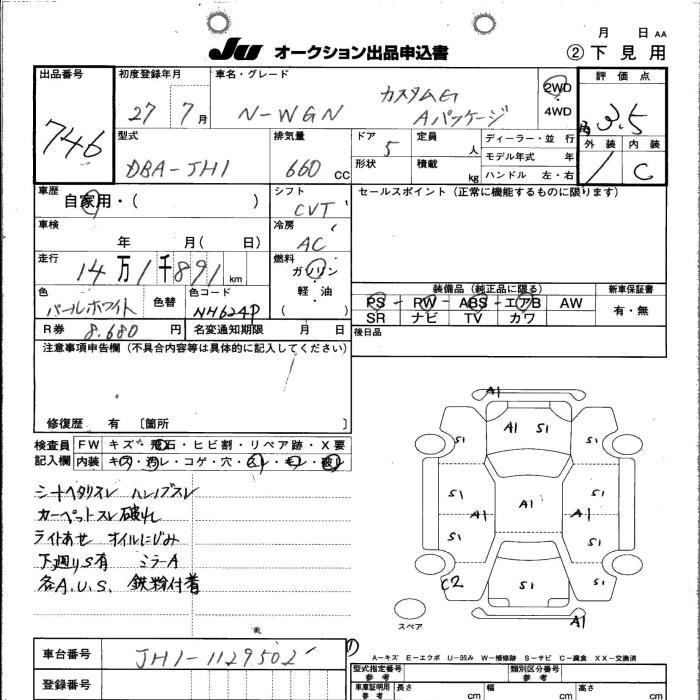 月 日 AA
JU オークション出品申込書 ② 下見用
出品番号 初度登録年月 車名・グレード 評価点
746 27 年 7月 N-WGN カスタムG Aパッケージ 2WD 4WD 3.5
型式 排気量 ドア 定員 ディーラー・並行 外装 内装
DBA-JH1 660 CC 5 人 モデル年式 年 1 C
形状 積載 kg ハンドル 左・右
車歴 自家用・( ) シフト CVT セールスポイント (正常に機能するものに限ります)
車検 年 月( 日) 冷房 AC
走行 14万1千891 km 燃料 ガソリン 軽・油 ( )
装備品 (純正品に限る) 新車保証書
色 パールホワイト 色替 色コード NH624P
PS - RW - ABS - エアB AW 有・無
SR ナビ TV カワ
R券 8.680 円 名変通知期限 月 日 後日品
注意事項申告欄 (不具合内容等は具体的に記入してください)
修復歴 有 〔箇所 〕
検査員 FW キズ・飛石・ヒビ割・リペア跡・X要
記入欄 内装 キズ・汚レ・コゲ・穴・スレ・モレ・破レ
シートヘタリスレ ハンドブスレ
カーペットスレ 破れ
ライトあせ オイルにじみ
下廻りS有 ミラーA
各A.U.S. 鉄粉付着
A1
A1 S1
S1 S1
S1 S1
A1 A1 A1
S1 S1
C2 S1
A1
スペア
車台番号 JH1-1129502
A－キズ E－エクボ U－凹み W－補修跡 S－サビ C－腐食 XX－交換済
型式指定番号 類別区分番号
参考 参考
登録番号
車庫証明用 参考 長さ cm 幅 cm 高さ cm